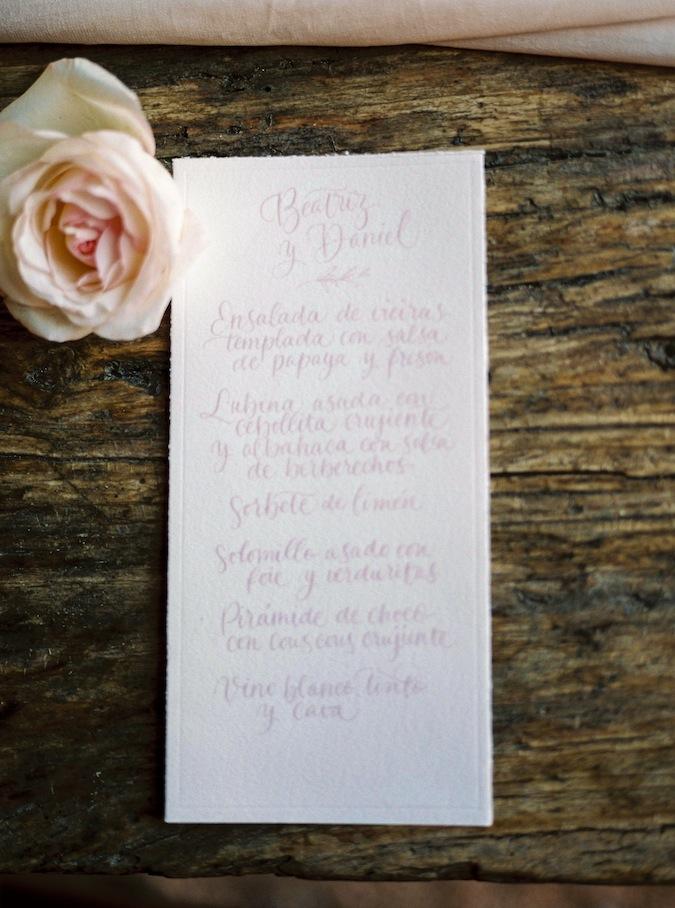 Beatriz
y Daniel
Ensalada de vieiras
templada con salsa
de papaya y frisón
Lubina asada con
cebollita crujiente
y albahaca con salsa
de berberechos
Sorbete de limón
Solomillo asado con
foie y verduritas
Pirámide de choco
con couscous crujiente
Vino blanco, tinto
y cava